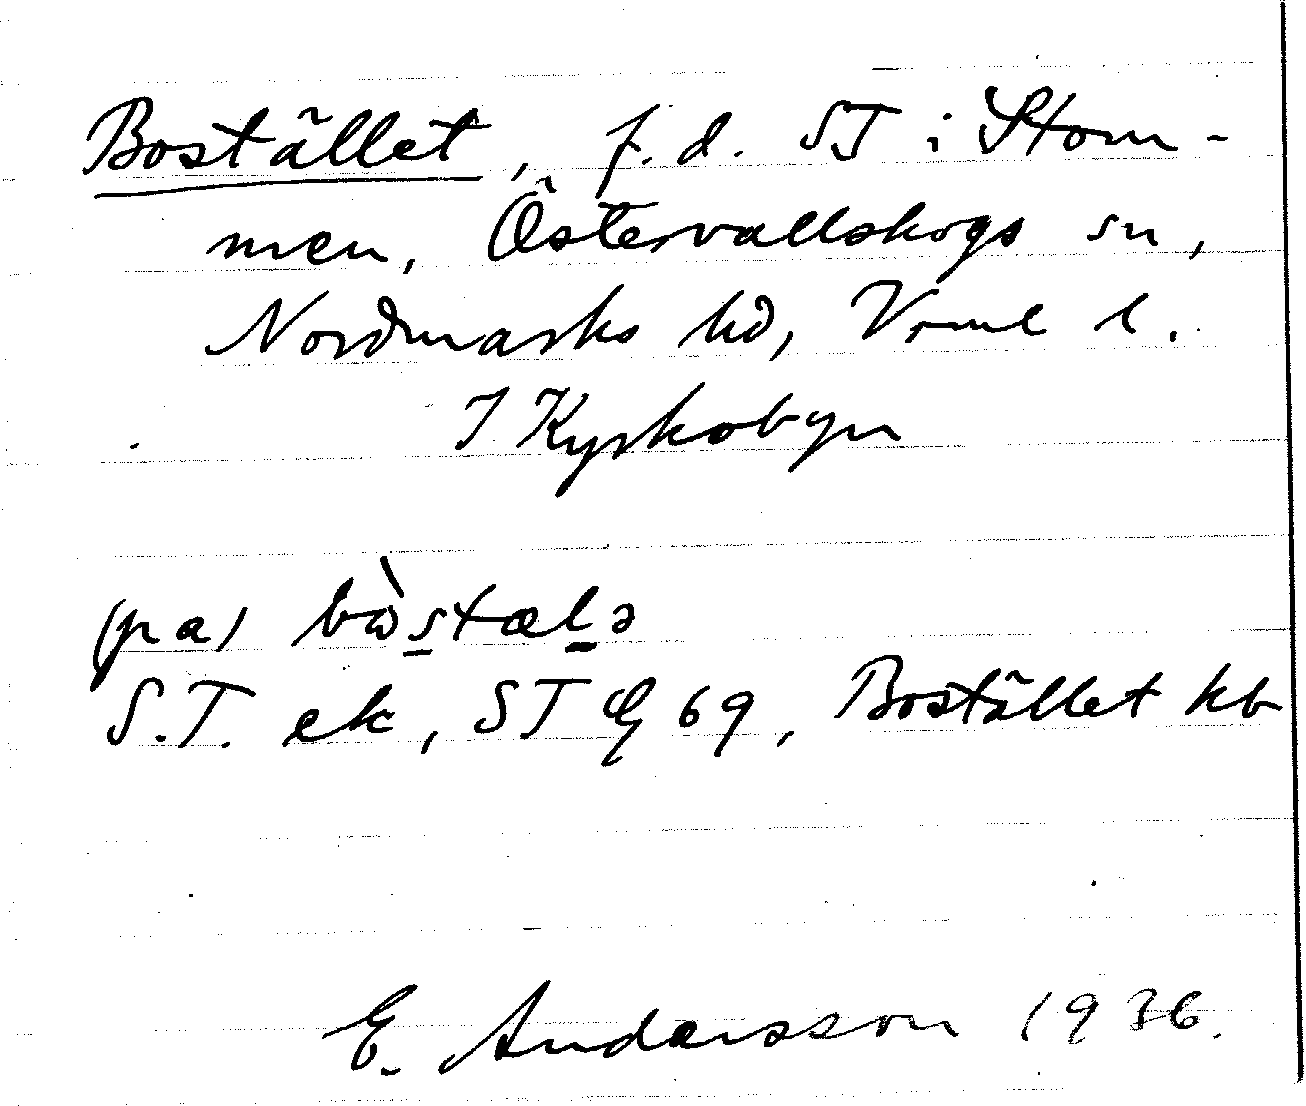 Bostället, f.d. ST i Stom-
men, Östervallskogs sn,
Nordmarks hd, Vrml l.
I Kyrkobyn
(pa) bɷ̀stælə
S.T. ek, ST G 69, Bostället kb
E. Andersson 1936.